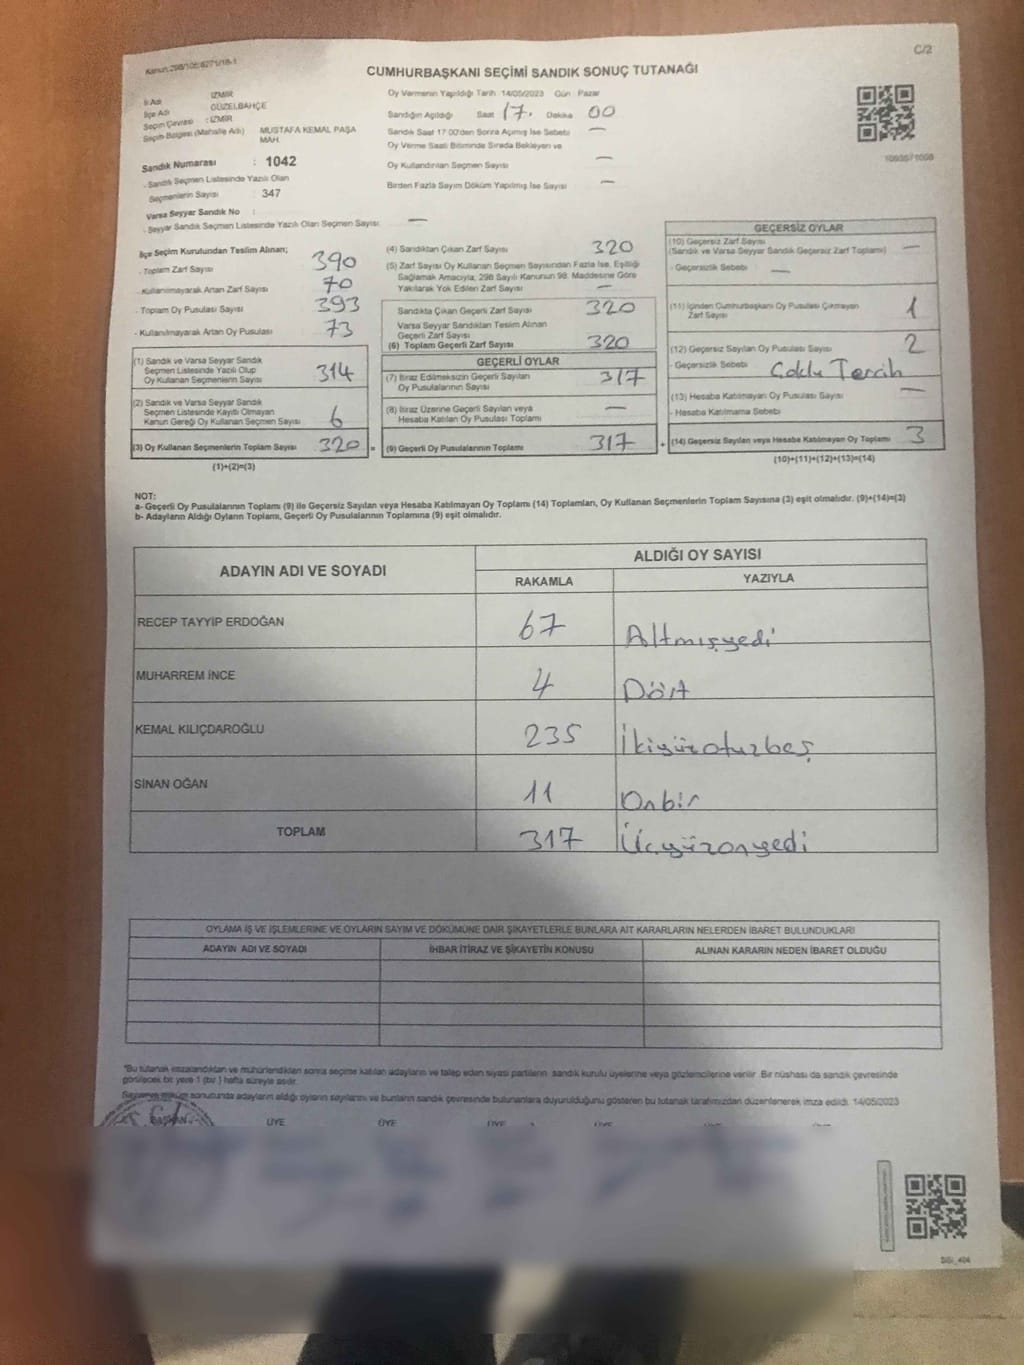 C/2
Kanun:298/105;6271/18-1
CUMHURBAŞKANI SEÇİMİ SANDIK SONUÇ TUTANAĞI
İl Adı : İZMİR
İlçe Adı : GÜZELBAHÇE
Seçim Çevresi : İZMİR
Seçim Bölgesi (Mahalle Adı) MUSTAFA KEMAL PAŞA MAH.
Sandık Numarası : 1042
- Sandık Seçmen Listesinde Yazılı Olan
Seçmenlerin Sayısı : 347
Varsa Seyyar Sandık No :
- Seyyar Sandık Seçmen Listesinde Yazılı Olan Seçmen Sayısı: —
Oy Vermenin Yapıldığı Tarih: 14/05/2023 Gün: Pazar
Sandığın Açıldığı Saat 17. Dakika 00
Sandık Saat 17:00'den Sonra Açılmış İse Sebebi —
Oy Verme Saati Bitiminde Sırada Bekleyen ve
Oy Kullandırılan Seçmen Sayısı —
Birden Fazla Sayım Döküm Yapılmış İse Sayısı —
İlçe Seçim Kurulundan Teslim Alınan;
- Toplam Zarf Sayısı 390
- Kullanılmayarak Artan Zarf Sayısı 70
- Toplam Oy Pusulası Sayısı 393
- Kullanılmayarak Artan Oy Pusulası 73
(1) Sandık ve Varsa Seyyar Sandık
Seçmen Listesinde Yazılı Olup
Oy Kullanan Seçmenlerin Sayısı 314
(2) Sandık ve Varsa Seyyar Sandık
Seçmen Listesinde Kayıtlı Olmayan
Kanun Gereği Oy Kullanan Seçmen Sayısı 6
(3) Oy Kullanan Seçmenlerin Toplam Sayısı 320 =
(1)+(2)=(3)
(4) Sandıktan Çıkan Zarf Sayısı 320
(5) Zarf Sayısı Oy Kullanan Seçmen Sayısından Fazla İse, Eşitliği
Sağlamak Amacıyla, 298 Sayılı Kanunun 98. Maddesine Göre
Yakılarak Yok Edilen Zarf Sayısı —
Sandıkta Çıkan Geçerli Zarf Sayısı 320
Varsa Seyyar Sandıktan Teslim Alınan
Geçerli Zarf Sayısı
(6) Toplam Geçerli Zarf Sayısı 320
GEÇERLİ OYLAR
(7) İtiraz Edilmeksizin Geçerli Sayılan
Oy Pusulalarının Sayısı 317
(8) İtiraz Üzerine Geçerli Sayılan veya
Hesaba Katılan Oy Pusulası Toplamı —
(9) Geçerli Oy Pusulalarının Toplamı 317 +
GEÇERSİZ OYLAR
(10) Geçersiz Zarf Sayısı
(Sandık ve Varsa Seyyar Sandık Geçersiz Zarf Toplamı) —
- Geçersizlik Sebebi —
(11) İçinden Cumhurbaşkanı Oy Pusulası Çıkmayan
Zarf Sayısı 1
(12) Geçersiz Sayılan Oy Pusulası Sayısı 2
- Geçersizlik Sebebi Çoklu Tercih
(13) Hesaba Katılmayan Oy Pusulası Sayısı —
- Hesaba Katılmama Sebebi
(14) Geçersiz Sayılan veya Hesaba Katılmayan Oy Toplamı 3
(10)+(11)+(12)+(13)=(14)
NOT:
a- Geçerli Oy Pusulalarının Toplamı (9) ile Geçersiz Sayılan veya Hesaba Katılmayan Oy Toplamı (14) Toplamları, Oy Kullanan Seçmenlerin Toplam Sayısına (3) eşit olmalıdır. (9)+(14)=(3)
b- Adayların Aldığı Oyların Toplamı, Geçerli Oy Pusulalarının Toplamına (9) eşit olmalıdır.
ADAYIN ADI VE SOYADI
ALDIĞI OY SAYISI
RAKAMLA YAZIYLA
RECEP TAYYİP ERDOĞAN 67 Altmışyedi
MUHARREM İNCE 4 Dört
KEMAL KILIÇDAROĞLU 235 İkiyüzotuzbeş
SİNAN OĞAN 11 Onbir
TOPLAM 317 Üçyüzonyedi
OYLAMA İŞ VE İŞLEMLERİNE VE OYLARIN SAYIM VE DÖKÜMÜNE DAİR ŞİKAYETLERLE BUNLARA AİT KARARLARIN NELERDEN İBARET BULUNDUKLARI
ADAYIN ADI VE SOYADI İHBAR İTİRAZ VE ŞİKAYETİN KONUSU ALINAN KARARIN NEDEN İBARET OLDUĞU
*Bu tutanak imzalandıktan ve mühürlendikten sonra seçime katılan adayların ve talep eden siyasi partilerin sandık kurulu üyelerine veya gözlemcilerine verilir. Bir nüshası da sandık çevresinde
görülecek bir yere 1 (bir ) hafta süreyle asılır.
Sayım ve döküm sonunda adayların aldığı oyların sayılarını ve bunların sandık çevresinde bulunanlara duyurulduğunu gösteren bu tutanak tarafımızdan düzenlenerek imza edildi. 14/05/2023
BAŞKAN ÜYE ÜYE ÜYE ÜYE